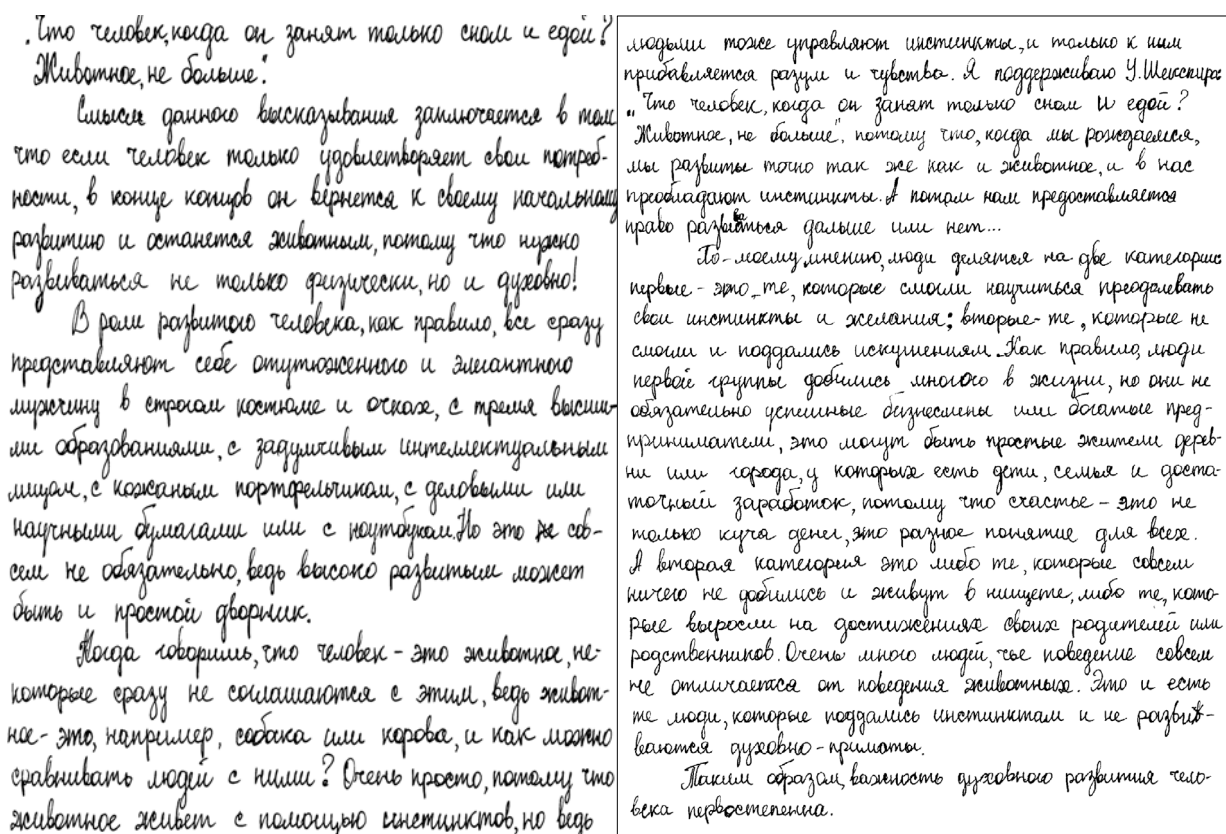 „Что человек, когда он занят только сном и едой?
Животное, не больше".
Смысл данного высказывания заключается в том
что если человек только удовлетворяет свои потреб-
ности, в конце концов он вернется к своему начальному
развитию и останется животным, потому что нужно
развиваться не только физически, но и духовно!
В роли развитого человека, как правило, все сразу
представляют себе отутюженного и элегантного
мужчину в строгом костюме и очках, с тремя высши-
ми образованиями, с задумчивым интеллектуальным
лицом, с кожаным портфельчиком, с деловыми или
научными бумагами или с ноутбуком. Но это сов-
сем не обязательно, ведь высоко развитым может
быть и простой дворник.
Когда говоришь, что человек - это животное, не-
которые сразу не соглашаются с этим, ведь живот-
ное - это, например, собака или корова, и как можно
сравнивать людей с ними? Очень просто, потому что
животное живет с помощью инстинктов, но ведь
людьми тоже управляют инстинкты, и только к ним
прибавляется разум и чувства. Я поддерживаю У. Шекспира
„Что человек, когда он занят только сном и едой?
Животное, не больше", потому что, когда мы рождаемся,
мы развиты точно так же как и животное, и в нас
преобладают инстинкты. А потом нам предоставляется
право развиваться дальше или нет...
По-моему мнению, люди делятся на две категории
первые - это те, которые смогли научиться преодолевать
свои инстинкты и желания; вторые - те, которые не
смогли и поддались искушениям. Как правило, люди
первой группы добились многого в жизни, но они не
обязательно успешные бизнесмены или богатые пред-
приниматели, это могут быть простые жители дерев-
ни или города, у которых есть дети, семья и доста-
точный заработок, потому что счастье - это не
только куча денег, это разное понятие для всех.
А вторая категория это либо те, которые совсем
ничего не добились и живут в нищете, либо те, кото-
рые выросли на достижениях своих родителей или
родственников. Очень много людей, чье поведение совсем
не отличается от поведения животных. Это и есть
те люди, которые поддались инстинктам и не разви-
ваются духовно - приматы.
Таким образом, важность духовного развития чело-
века первостепенна.